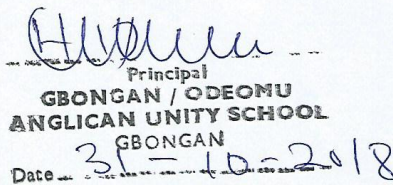 Principal
GBONGAN / ODEOMU
ANGLICAN UNITY SCHOOL
GBONGAN
Date 31-10-2018